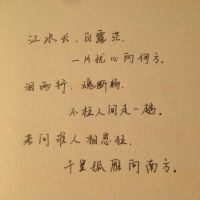 江水长，白露茫，
一片忧心问何方。
泪两行，魂断肠，
不枉人间走一趟。
若问谁人相思狂，
千里孤雁问南方。